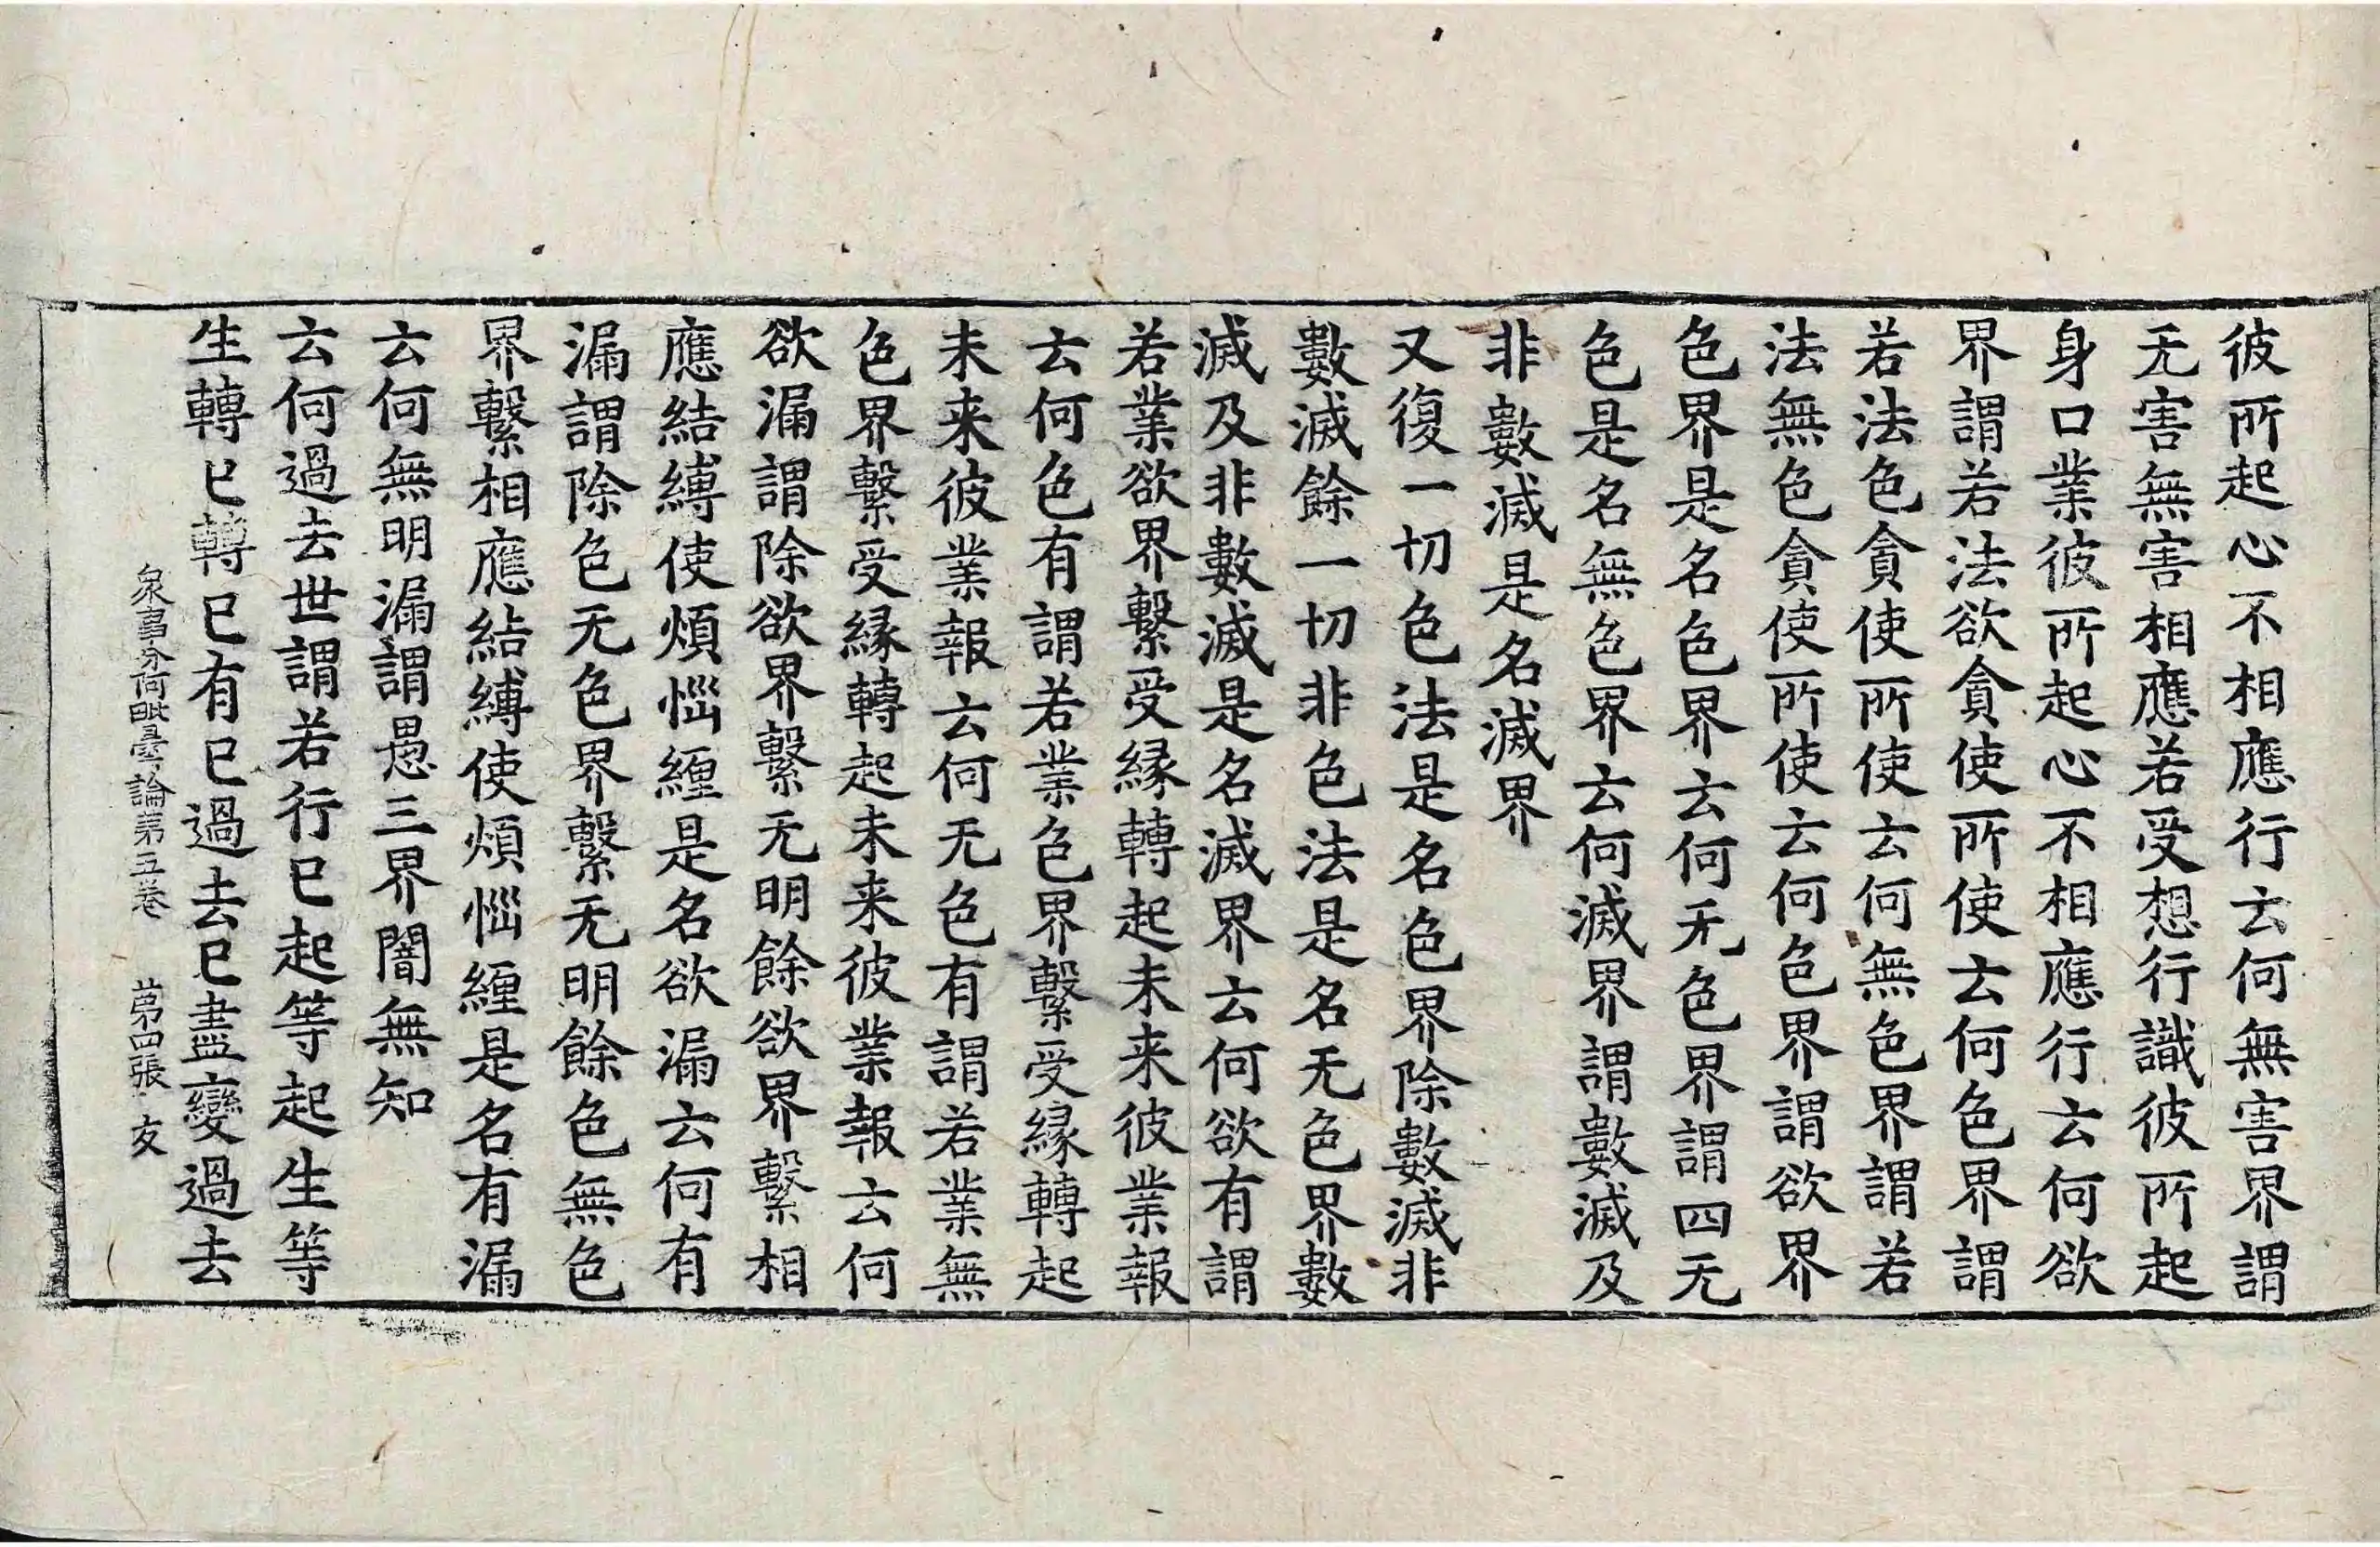 彼所起心不相應行云何無害界謂
无害無害相應若受想行識彼所起
身口業彼所起心不相應行云何欲
界謂若法欲貪使所使云何色界謂
若法色貪使所使云何無色界謂若
法無色貪使所使云何色界謂欲界
色界是名色界云何无色界謂四无
色是名無色界云何滅界謂數滅及
非數滅是名滅界
又復一切色法是名色界除數滅非
數滅餘一切非色法是名无色界數
滅及非數滅是名滅界云何欲有謂
若業欲界繫受緣轉起未来彼業報
云何色有謂若業色界繫受緣轉起
未来彼業報云何无色有謂若業無
色界繫受緣轉起未来彼業報云何
欲漏謂除欲界繫无明餘欲界繫相
應結縛使煩惱纏是名欲漏云何有
漏謂除色无色界繫无明餘色無色
界繫相應結縛使煩惱纏是名有漏
云何無明漏謂愚三界闇無知
云何過去世謂若行已起等起生等
生轉已轉已有已過去已盡變過去
衆事分阿毗曇論第五卷 第四張 友